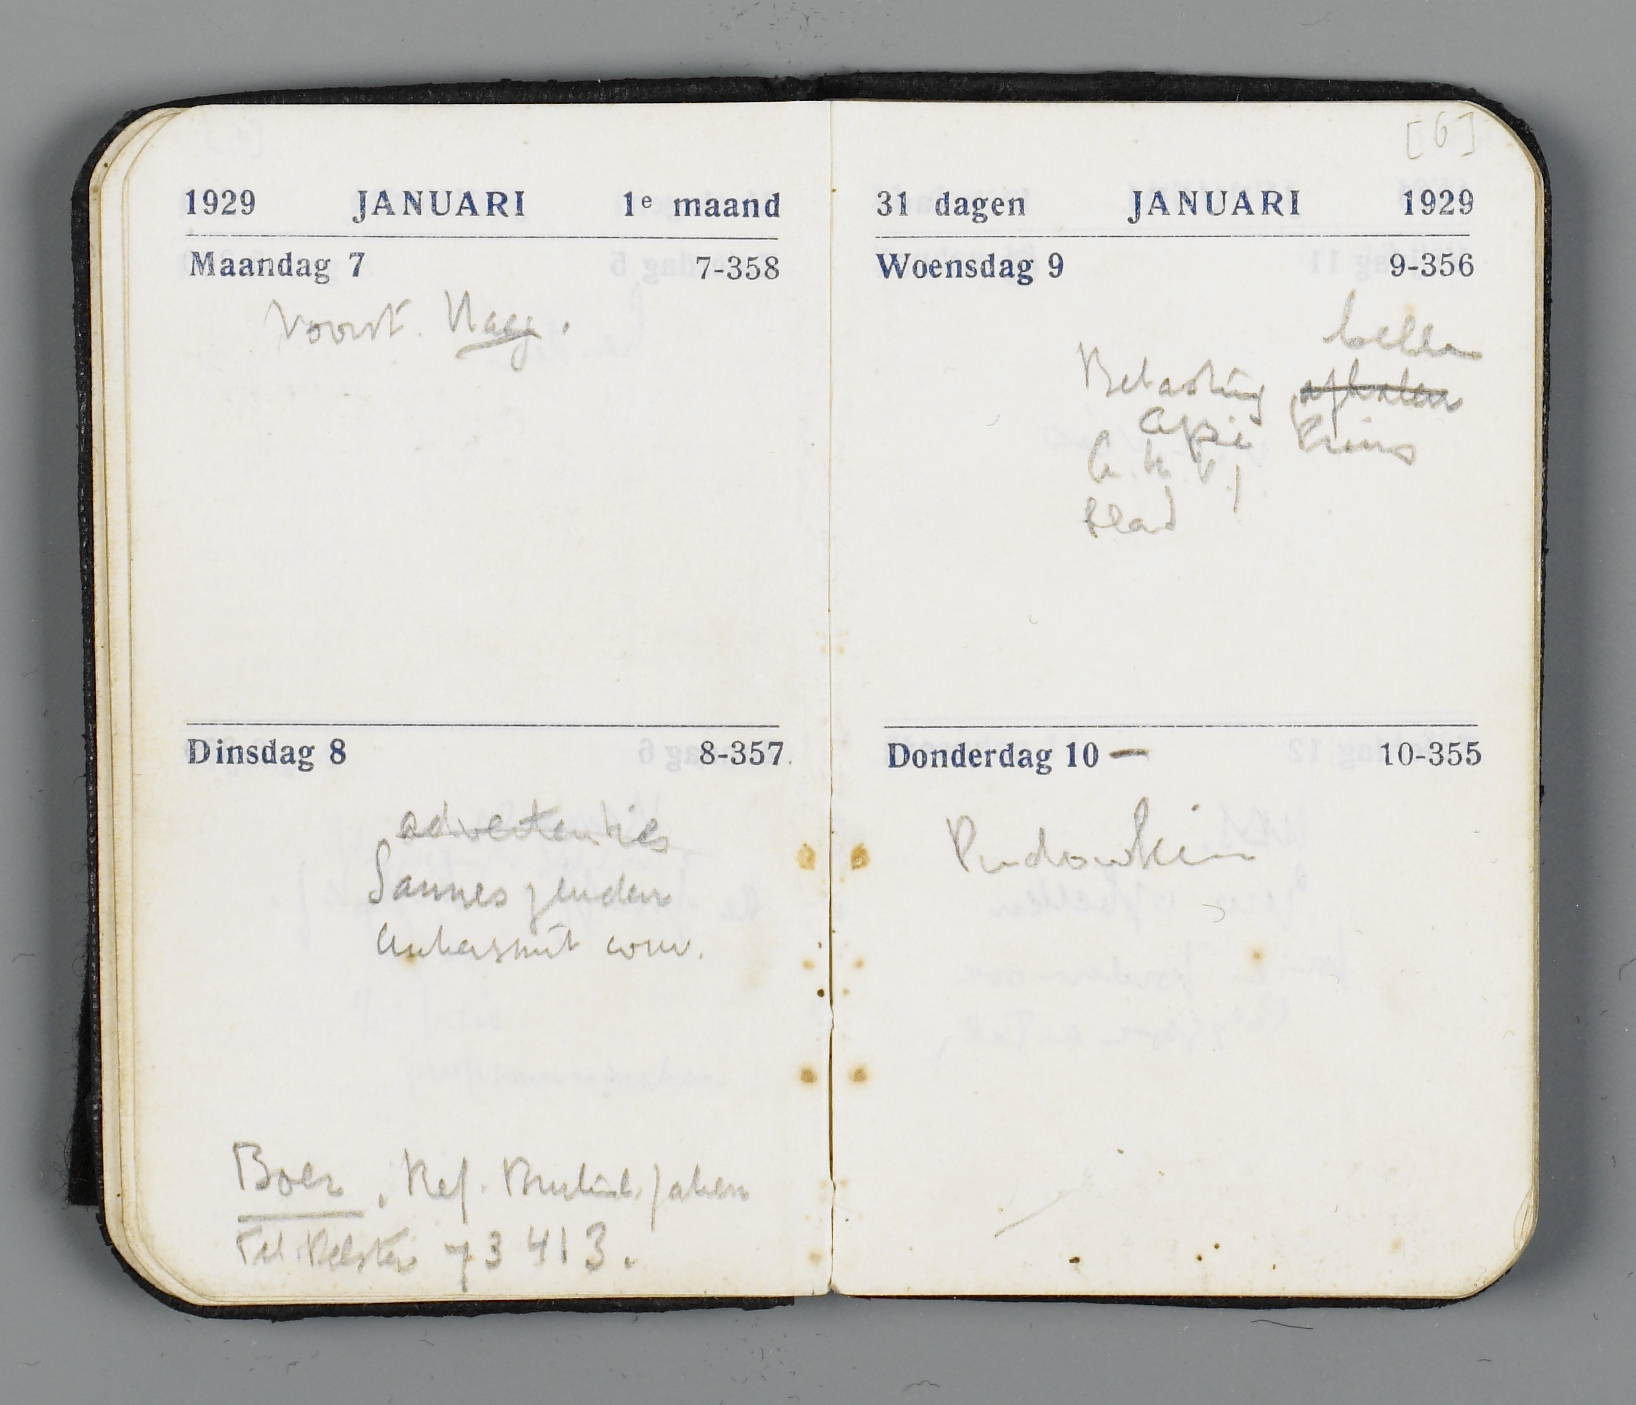 1929 JANUARI 1e maand
Maandag 7 7-358
Voorst. Haag.
Dinsdag 8 8-357
advertenties
Sannes zenden
conv.
Boer, Ref. zaken
Tel. 73413.
[6]
31 dagen JANUARI 1929
Woensdag 9 9-356
bellen
Belasting afhalen
blad
Donderdag 10 — 10-355
Pudowkin